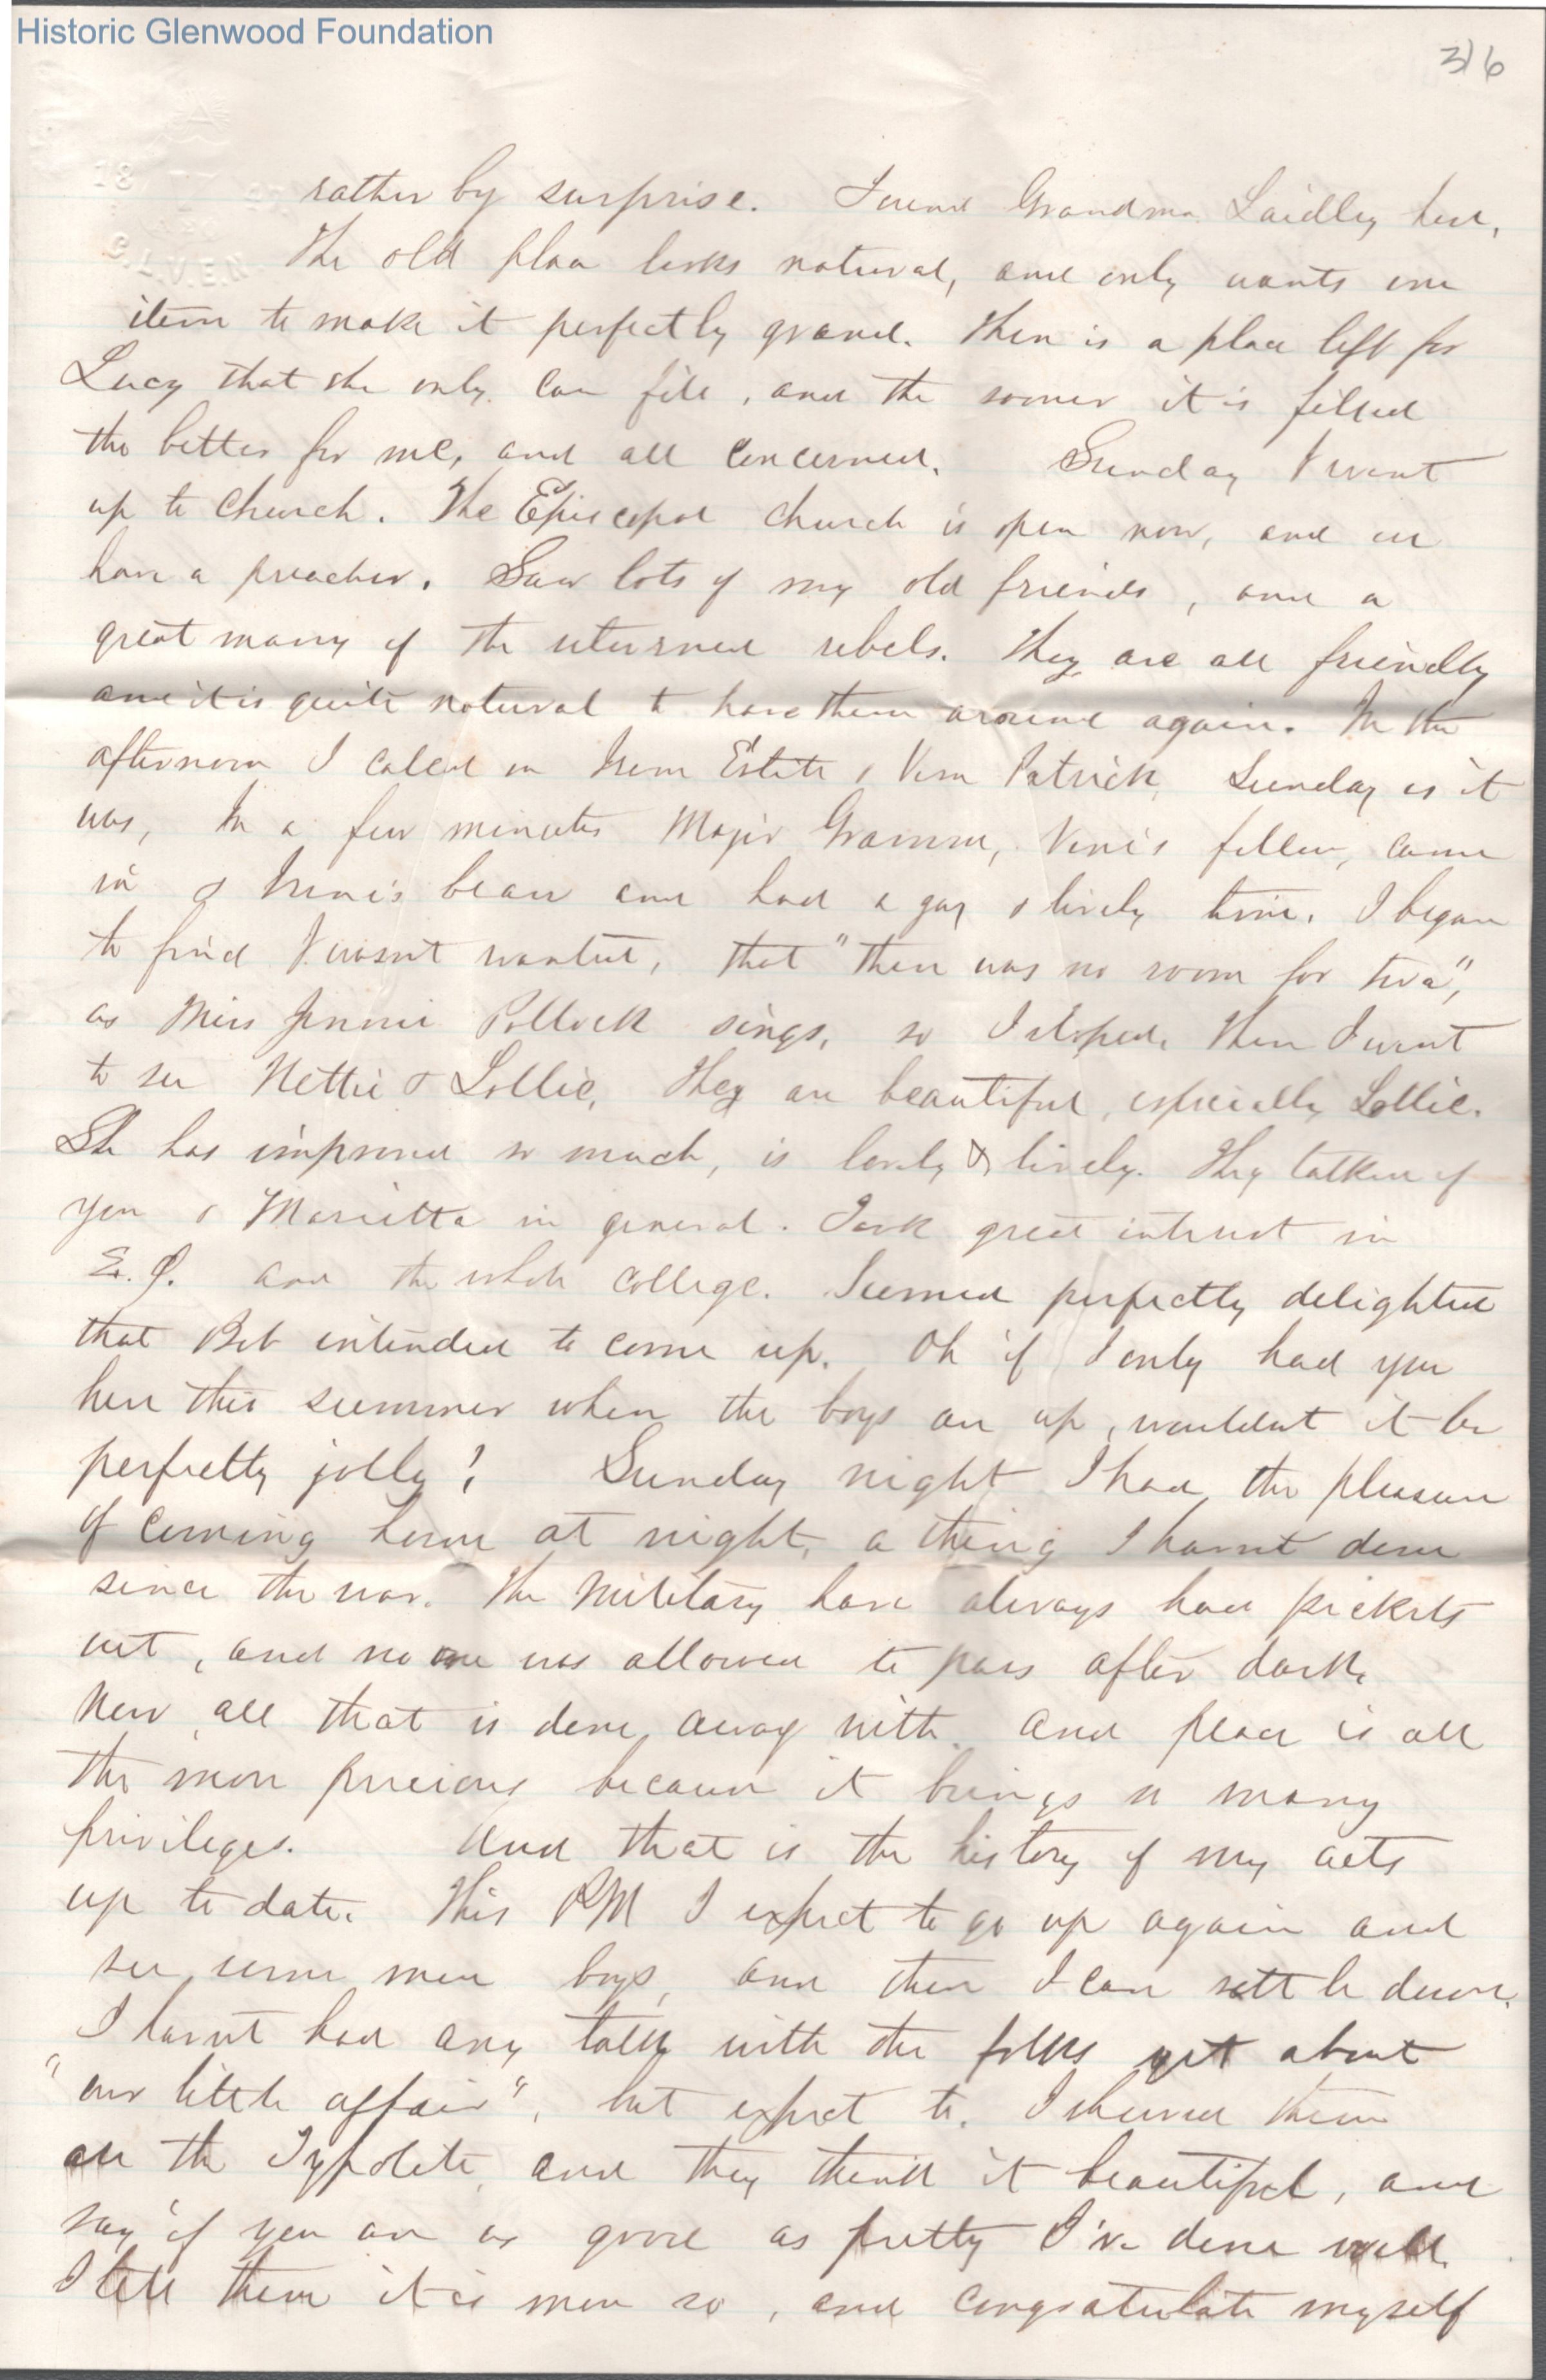 Historic Glenwood Foundation
3/6
rather by surprise. Found Grandma Laidley here,
The old place looks natural, and only wants one
item to make it perfectly grand. There is a place left for
Lucy that she only can fill, and the sooner it is filled
the better for me, and all concerned. Sunday I went
up to church. The Episcopal church is open now, and we
have a preacher. Saw lots of my old friends, and a
great many of the returned rebels. They are all friendly
and it is quite natural to have them around again. In the
afternoon I called on Estite & Patrick, Sunday as it
was, In a few minutes Major Gramm, fellow, came
in & beau and had a gay & lively time. I began
to find I wasn't wanted, that "there was no room for twa",
as Miss Jennie Pollock sings, so I sloped. Then I went
to see Nettie & Lollie, They are beautiful, especially Lollie.
She has improved so much, is lovely & lively. They talked of
you & Marietta in general. Took great interest in
and the whole college. Seemed perfectly delighted
that Bob intended to come up. Oh if I only had you
here this summer when the boys are up, wouldn't it be
perfectly jolly! Sunday night I had the pleasure
of coming home at night, a thing I havnt done
since the war. The Military have always had pickets
out, and no one was allowed to pass after dark.
Now all that is done away with. and peace is all
the more precious because it brings so many
privileges. And that is the history of my acts
up to date. This PM I expect to go up again and
see some more boys, and then I can settle down.
I havnt had any talk with the folks yet about
"our little affair", but expect to. I showed them
all the and they think it beautiful, and
say if you are as good as pretty I've done well.
I tell them it is more so, and congratulate myself